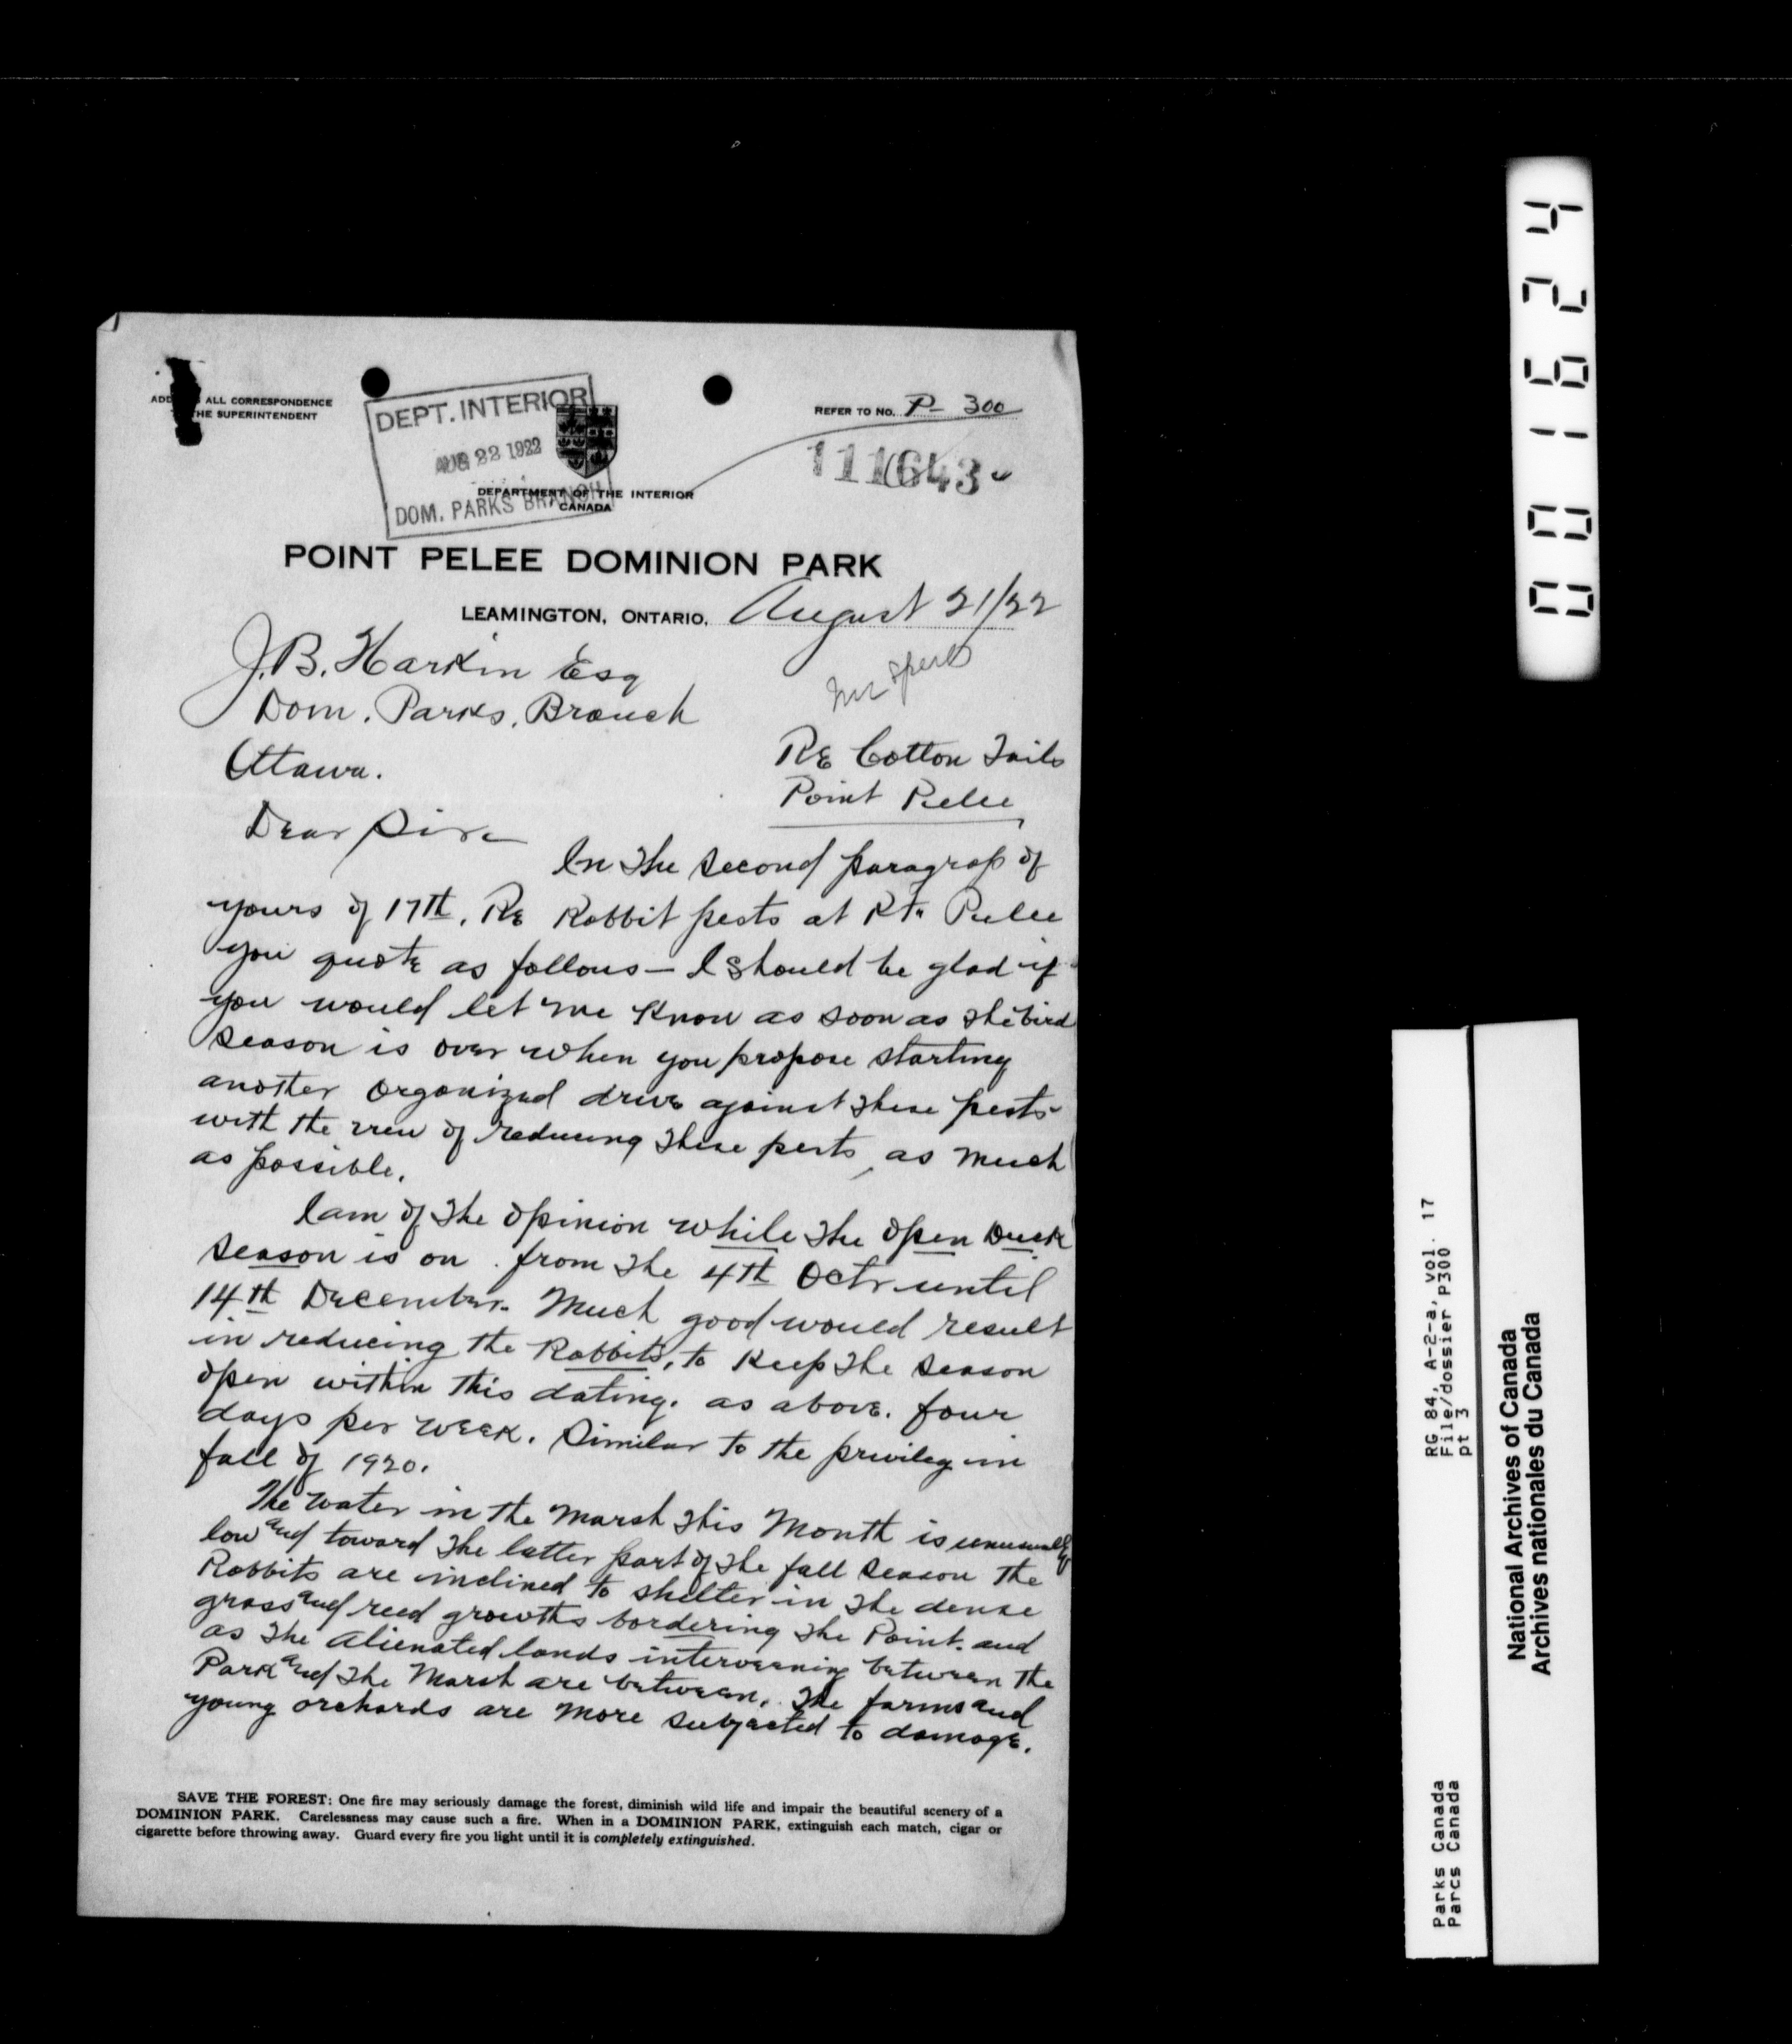 ALL CORRESPONDENCE
THE SUPERINTENDENT
DEPT. INTERIOR
AUG 22 1922
DOM. PARKS BRANCH
REFER TO NO. P- 300
111643
DEPARTMENT OF THE INTERIOR
CANADA
POINT PELEE DOMINION PARK
LEAMINGTON, ONTARIO, August 21/22
J.B. Harkin Esq
Dom. Parks. Branch
Ottawa.
Re Cotton Tails
Point Pelee
Dear Sir
In the second paragrap of
yours of 17th. Re Rabbit pests at Pt. Pelee
you quote as follows — I should be glad if
you would let me know as soon as the bird
season is over when you propose starting
another organized drive against these pests
with the view of reducing these pests, as much
as possible.
I am of the opinion while the open Duck
season is on. from the 4th Octr until
14th December. Much good would result
in reducing the Rabbits, to keep the season
open within this dating. as above. four
days per week. Similar to the privileg in
fall of 1920.
The water in the Marsh this Month is unusually
low and toward the latter part of the fall season the
Rabbits are inclined to shelter in the dense
grass and reed growths bordering the Point. and
as the alienated lands interveening between the
Park and the Marsh are between. The farms and
young orchards are more subjected to damage.
SAVE THE FOREST: One fire may seriously damage the forest, diminish wild life and impair the beautiful scenery of a
DOMINION PARK. Carelessness may cause such a fire. When in a DOMINION PARK, extinguish each match, cigar or
cigarette before throwing away. Guard every fire you light until it is completely extinguished.
001624
RG 84, A-2-a, vol. 17
File/dossier P300
pt 3
Parks Canada
Parcs Canada
National Archives of Canada
Archives nationales du Canada